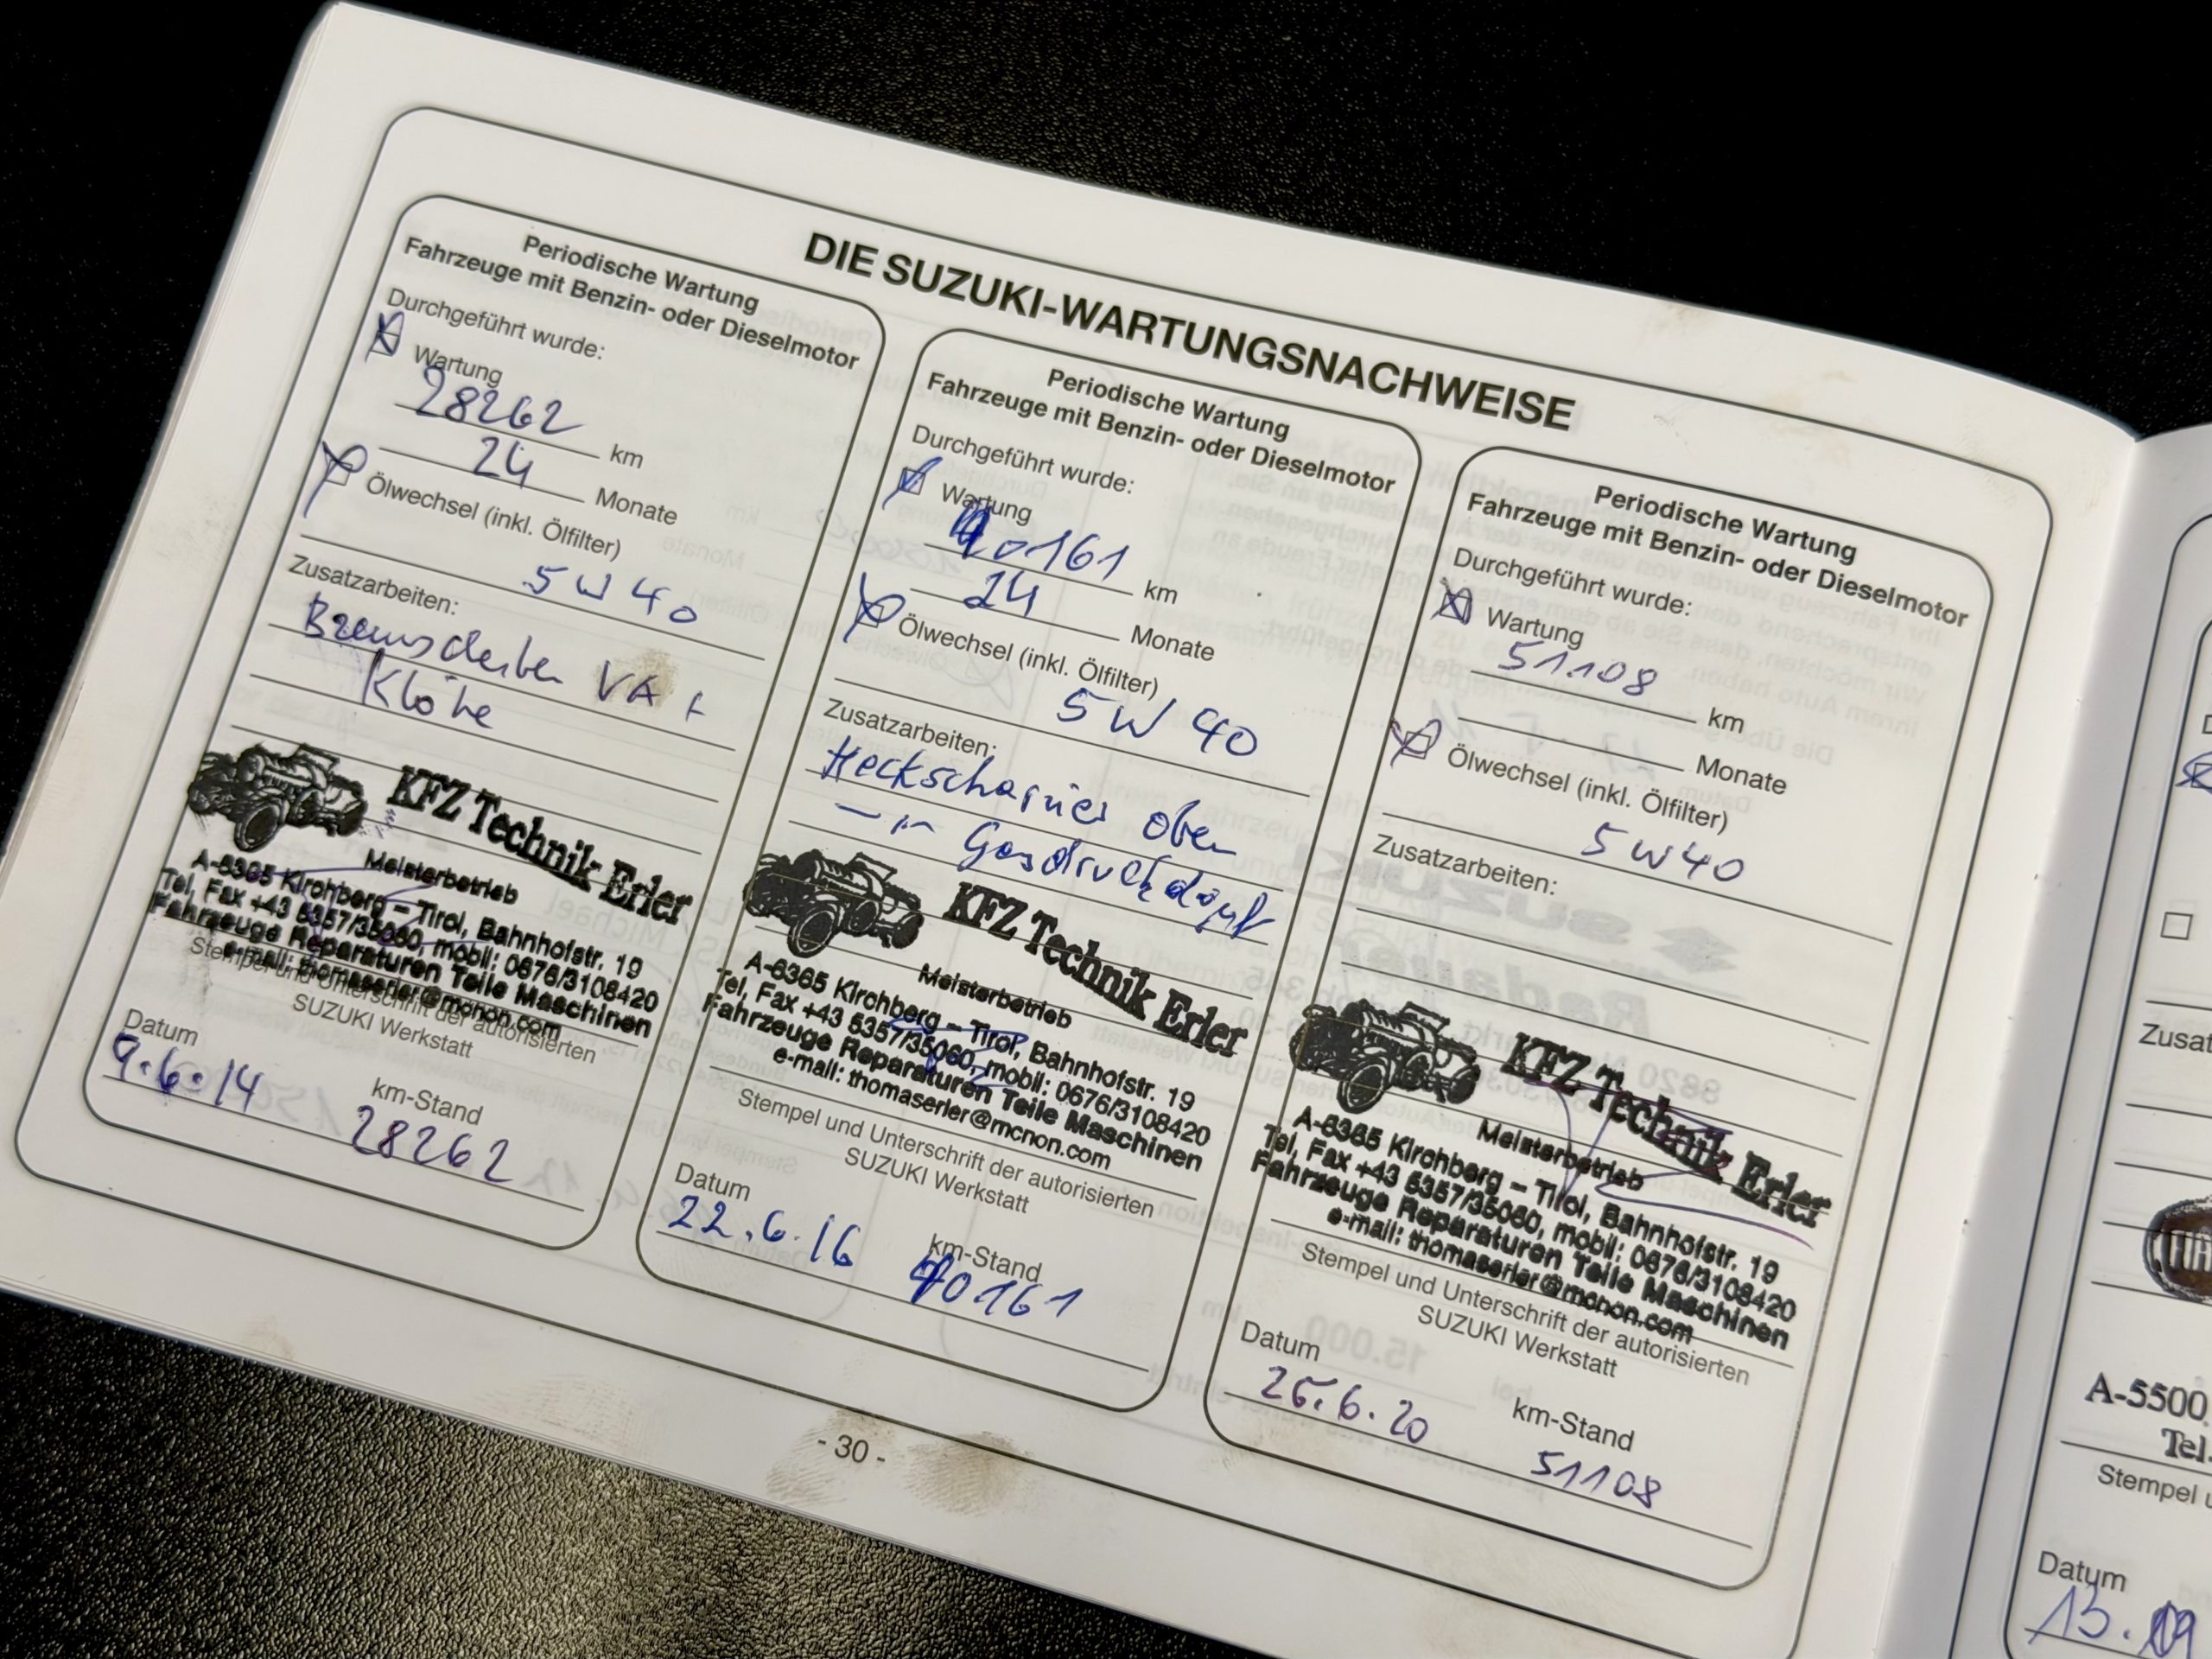 DIE SUZUKI-WARTUNGSNACHWEISE
Periodische Wartung
Fahrzeuge mit Benzin- oder Dieselmotor
Durchgeführt wurde:
Wartung
28262 km
24 Monate
Ölwechsel (inkl. Ölfilter)
5W40
Zusatzarbeiten:
Bremscheiben VA +
Klötze
KFZ Technik Erler
Meisterbetrieb
A-6365 Kirchberg – Tirol, Bahnhofstr. 19
Tel, Fax +43 5357/35060, mobil: 0676/3108420
Fahrzeuge Reparaturen Teile Maschinen
e-mail: thomaserler@mcnon.com
Stempel und Unterschrift der autorisierten
SUZUKI Werkstatt
Datum
9.6.14
km-Stand
28262
Periodische Wartung
Fahrzeuge mit Benzin- oder Dieselmotor
Durchgeführt wurde:
Wartung
40161 km
24 Monate
Ölwechsel (inkl. Ölfilter)
5W40
Zusatzarbeiten:
Heckscharnier oben
Gasdruckdämpf
KFZ Technik Erler
Meisterbetrieb
A-6365 Kirchberg – Tirol, Bahnhofstr. 19
Tel, Fax +43 5357/35060, mobil: 0676/3108420
Fahrzeuge Reparaturen Teile Maschinen
e-mail: thomaserler@mcnon.com
Stempel und Unterschrift der autorisierten
SUZUKI Werkstatt
Datum
22.6.16
km-Stand
40161
Periodische Wartung
Fahrzeuge mit Benzin- oder Dieselmotor
Durchgeführt wurde:
Wartung
51108 km
Monate
Ölwechsel (inkl. Ölfilter)
5W40
Zusatzarbeiten:
KFZ Technik Erler
Meisterbetrieb
A-6365 Kirchberg – Tirol, Bahnhofstr. 19
Tel, Fax +43 5357/35060, mobil: 0676/3108420
Fahrzeuge Reparaturen Teile Maschinen
e-mail: thomaserler@mcnon.com
Stempel und Unterschrift der autorisierten
SUZUKI Werkstatt
Datum
25.6.20
km-Stand
51108
- 30 -
Zusat
A-5500
Tel.
Stempel u
Datum